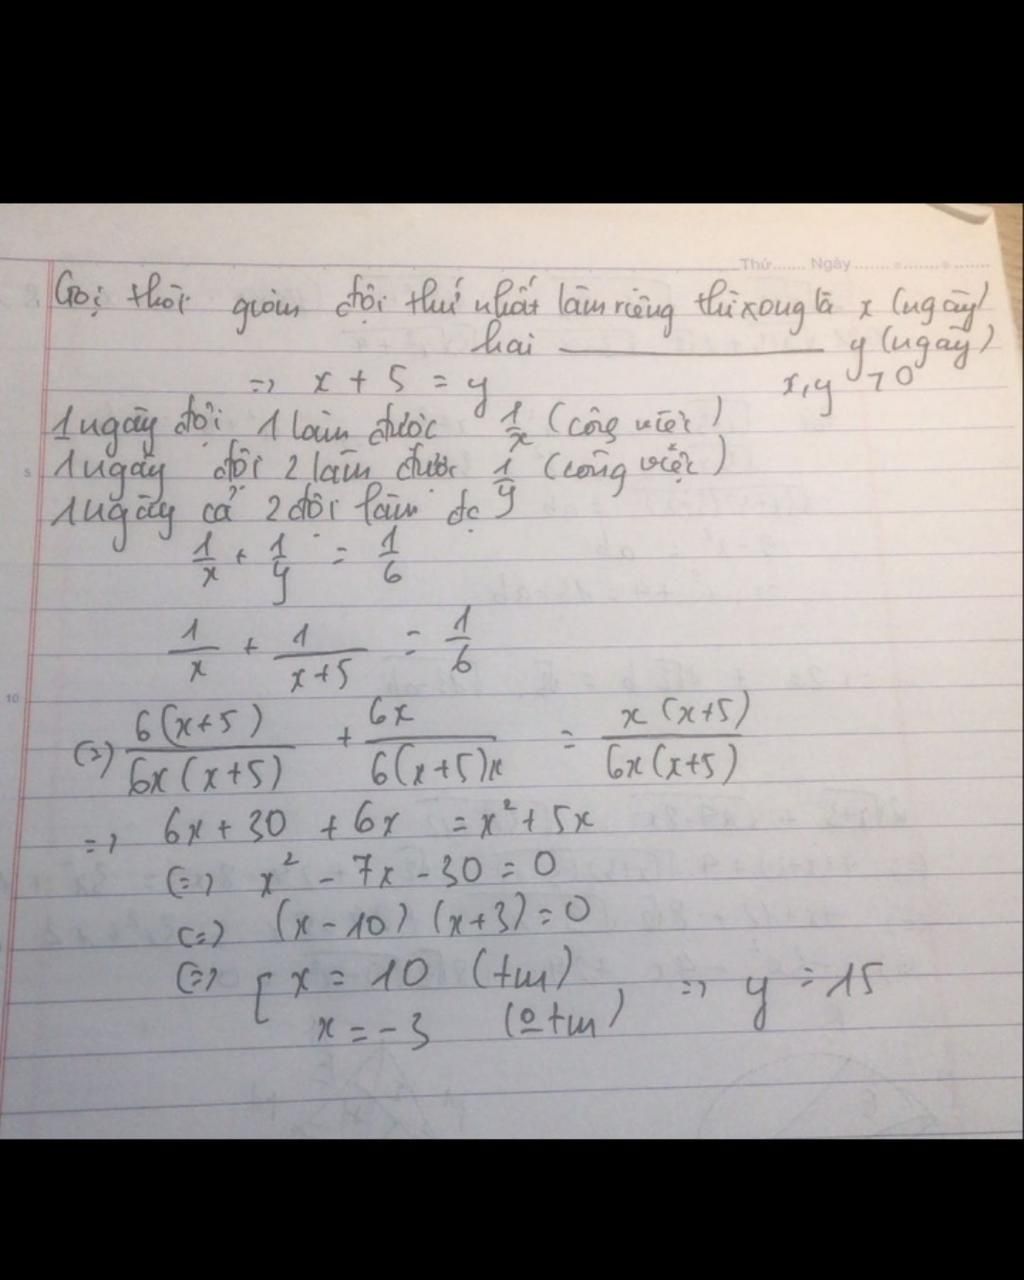 Thứ....... Ngày.......................
Gọi thời gian đội thứ nhất làm riêng thì xong là x (ngày)
hai ——————— y (ngày)
=> x + 5 = y x, y > 0
1 ngày đội 1 làm được 1/x (công việc)
5 1 ngày đội 2 làm được 1/y (công việc)
1 ngày cả 2 đội làm đc
1/x + 1/y = 1/6
1/x + 1/(x+5) = 1/6
10
(=) 6(x+5)/6x(x+5) + 6x/6(x+5)x = x(x+5)/6x(x+5)
=> 6x + 30 + 6x = x² + 5x
(=> x² - 7x - 30 = 0
(=> (x - 10) (x + 3) = 0
(=> [ x = 10 (tm) => y = 15
x = -3 (o tm)